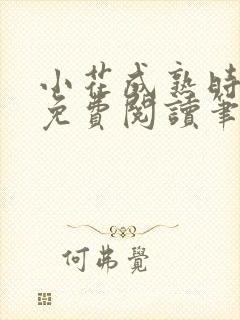 小花成熟時
免費閱讀筆
何弗覺